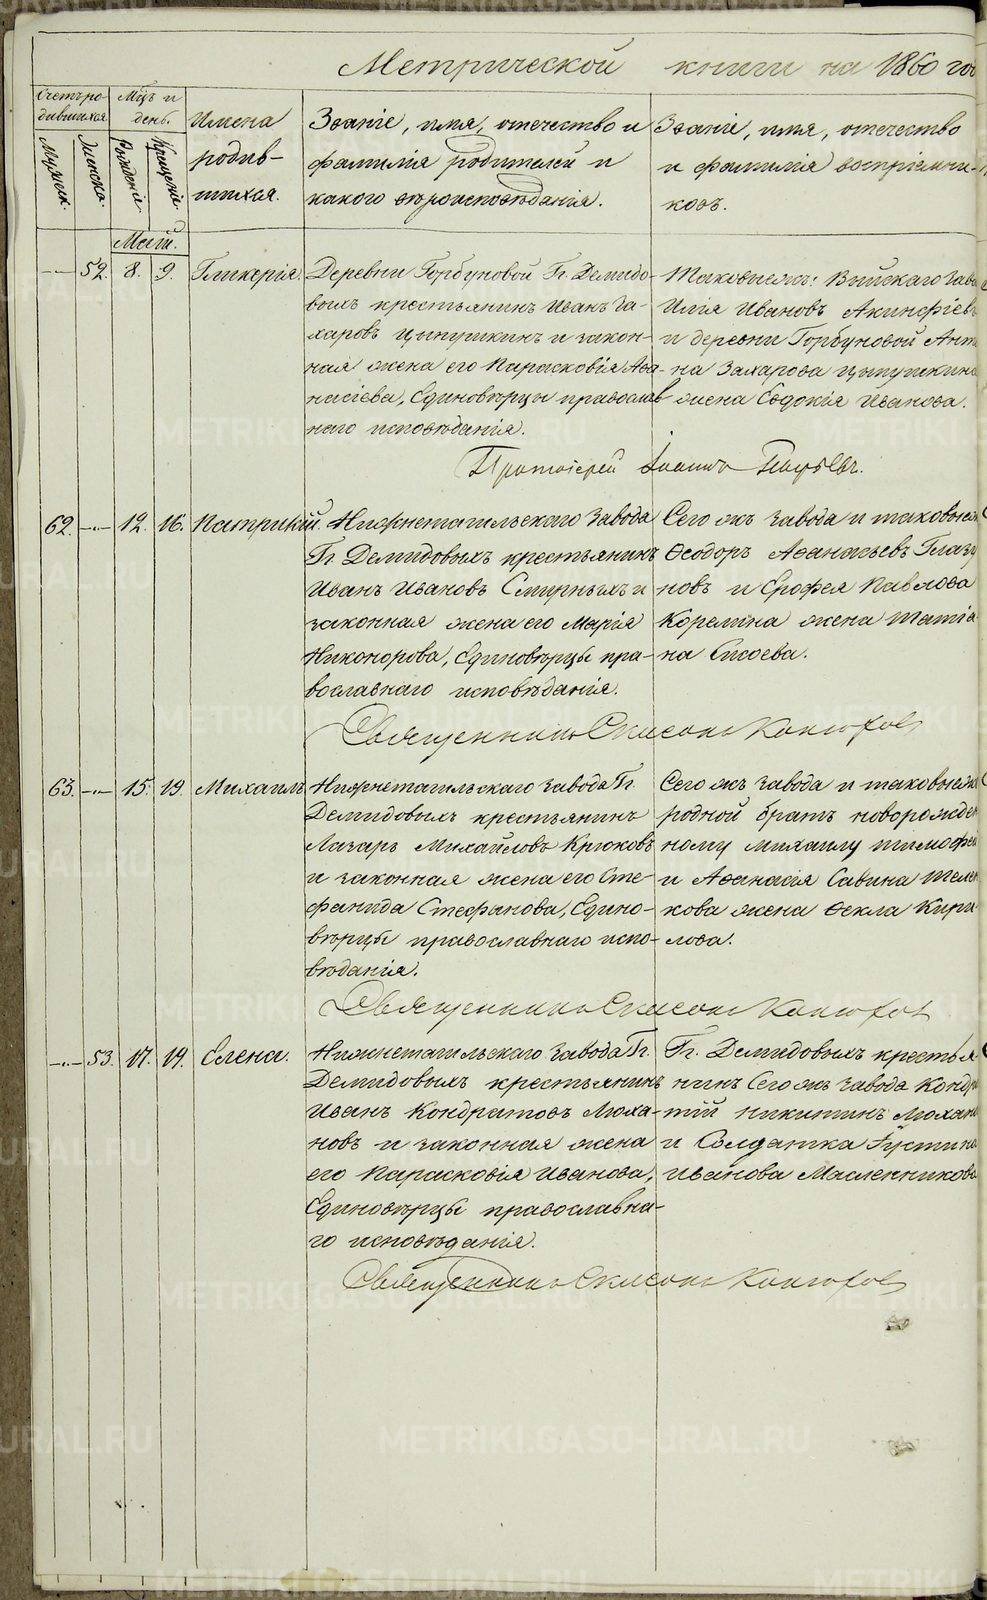 Метрической книги на 1860 го
Счетъ ро-
дившихся.
Мужеск.
Женска.
Мцъ и
день.
Рожденія
Крещенія
Имена
родив-
шихся.
Званіе, имя, отечество и
фамилія родителей и
какого вѣроисповѣданія.
Званіе, имя, отечество
и фамилія воспріемни-
ковъ.
Маій.
52. 8. 9. Гликерія.
Деревни Горбуновой Гг. Демидо-
выхъ крестьянинъ Иванъ За-
харовъ Цыпушкинъ и закон-
ная жена его Парасковія Аѳа-
насіева, Единовѣрцы православ
наго исповѣданія.
Таковыежъ: Выйскаго Заво
Илія Ивановъ Акинфіевъ
и деревни Горбуновой
на Захарова Цыпушкина
жена Евдокія Иванова.
Протоіерей Іоаннъ
62. 12. 16. Патрикій.
Нижнетагильскаго Завода
Гг. Демидовыхъ крестьянинъ
Иванъ Ивановъ Смирныхъ и
законная жена его Марія
Никонорова, Единовѣрцы пра-
вославнаго исповѣданія.
Сего жъ Завода и таковые
Ѳеодоръ Аѳанасьевъ Глазу
новъ и Ерофея Павлова
Корелина жена Татіа
на Сисоева.
Священникъ Симеонъ Конюховъ
63. 15. 19. Михаилъ
Нижнетагильскаго Завода Гг.
Демидовыхъ крестьянинъ
Лазарь Михайловъ Крюковъ
и законная жена его Сте-
фанида Стефанова, Едино-
вѣрцы православнаго испо-
вѣданія.
Сего жъ Завода и таковые
родной братъ новорожден
ному Михаилу Тимофей
и Аѳанасія Савина Шеле
кова жена Ѳекла Кири
лова.
Священникъ Симеонъ Конюховъ
53. 17. 19. Елена.
Нижнетагильскаго Завода Гг.
Демидовыхъ крестьянинъ
Иванъ Кондратовъ Моха-
новъ и законная жена
его Парасковія Иванова,
Единовѣрцы православна-
го исповѣданія.
Гг. Демидовыхъ кресть
нинъ Сего жъ Завода Конд
тій Никитинъ Мохано
и Солдатка Іустина
Иванова Масленникова
Священникъ Симеонъ Конюховъ
METRIKI.GASO-URAL.RU